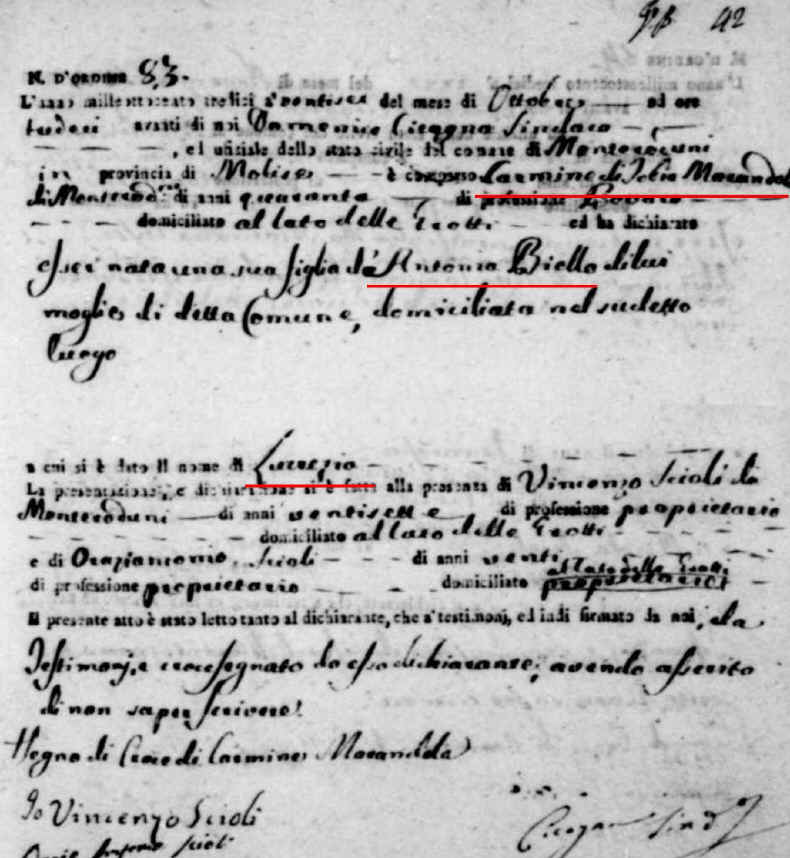 42
N. D'ORDINE 83.
L'anno milleottocento tredici a' ventisei del mese di Ottobre ad ore
avanti di noi Domenico Cicogna Sindaco
, ed uffiziale dello stato civile del comune di Monteroduni
in provincia di Molise è comparso Carmine di Tobia Marandola
di Monterod.ni di anni quaranta di professione Bovaro
domiciliato al lato delle Grotti ed ha dichiarato
esser nata una sua figlia da Antonia Biello di lui
moglie di detta Comune, domiciliata nel sudetto
luogo
a cui si è dato il nome di Lucrezia
La presentazione, e dichiarazione si è fatta alla presenza di Vincenzo Scioli di
Monteroduni di anni ventisette di professione proprietario
domiciliato al lato delle Grotti
e di Oraziantonio Scioli di anni venti
al lato delle Grotti
di professione proprietario domiciliato proprietario
Il presente atto è stato letto tanto al dichiarante, che a' testimonj, ed indi firmato da noi, da
Testimonj, e crocesegnato da esso dichiarante, avendo asserito
di non saper scrivere.
+ Segno di Croce di Carmine Marandola
Io Vincenzo Scioli
Cicogna Sind
Scioli